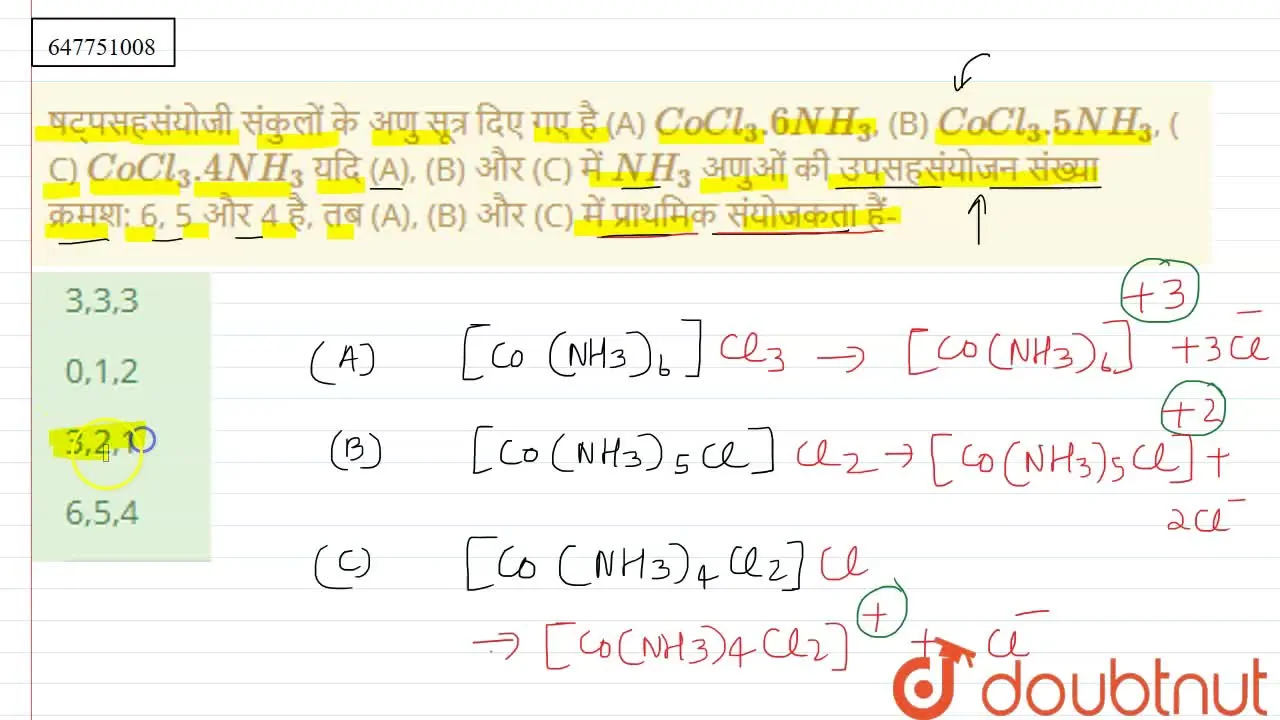 647751008
षट्पसहसंयोजी संकुलों के अणु सूत्र दिए गए है (A) CoCl₃.6NH₃, (B) CoCl₃.5NH₃, (
C) CoCl₃.4NH₃ यदि (A), (B) और (C) में NH₃ अणुओं की उपसहसंयोजन संख्या
क्रमश: 6, 5 और 4 है, तब (A), (B) और (C) में प्राथमिक संयोजकता हैं-
3,3,3
0,1,2
3,2,1
6,5,4
(A) [Co (NH3)₆] Cl₃ → [Co(NH3)₆]⁺³ + 3Cl⁻
(B) [Co(NH3)₅Cl] Cl₂ → [Co(NH3)₅Cl]⁺² +
2Cl⁻
(C) [Co (NH3)₄Cl₂] Cl
→ [Co(NH3)₄Cl₂]⁺ + Cl⁻
doubtnut